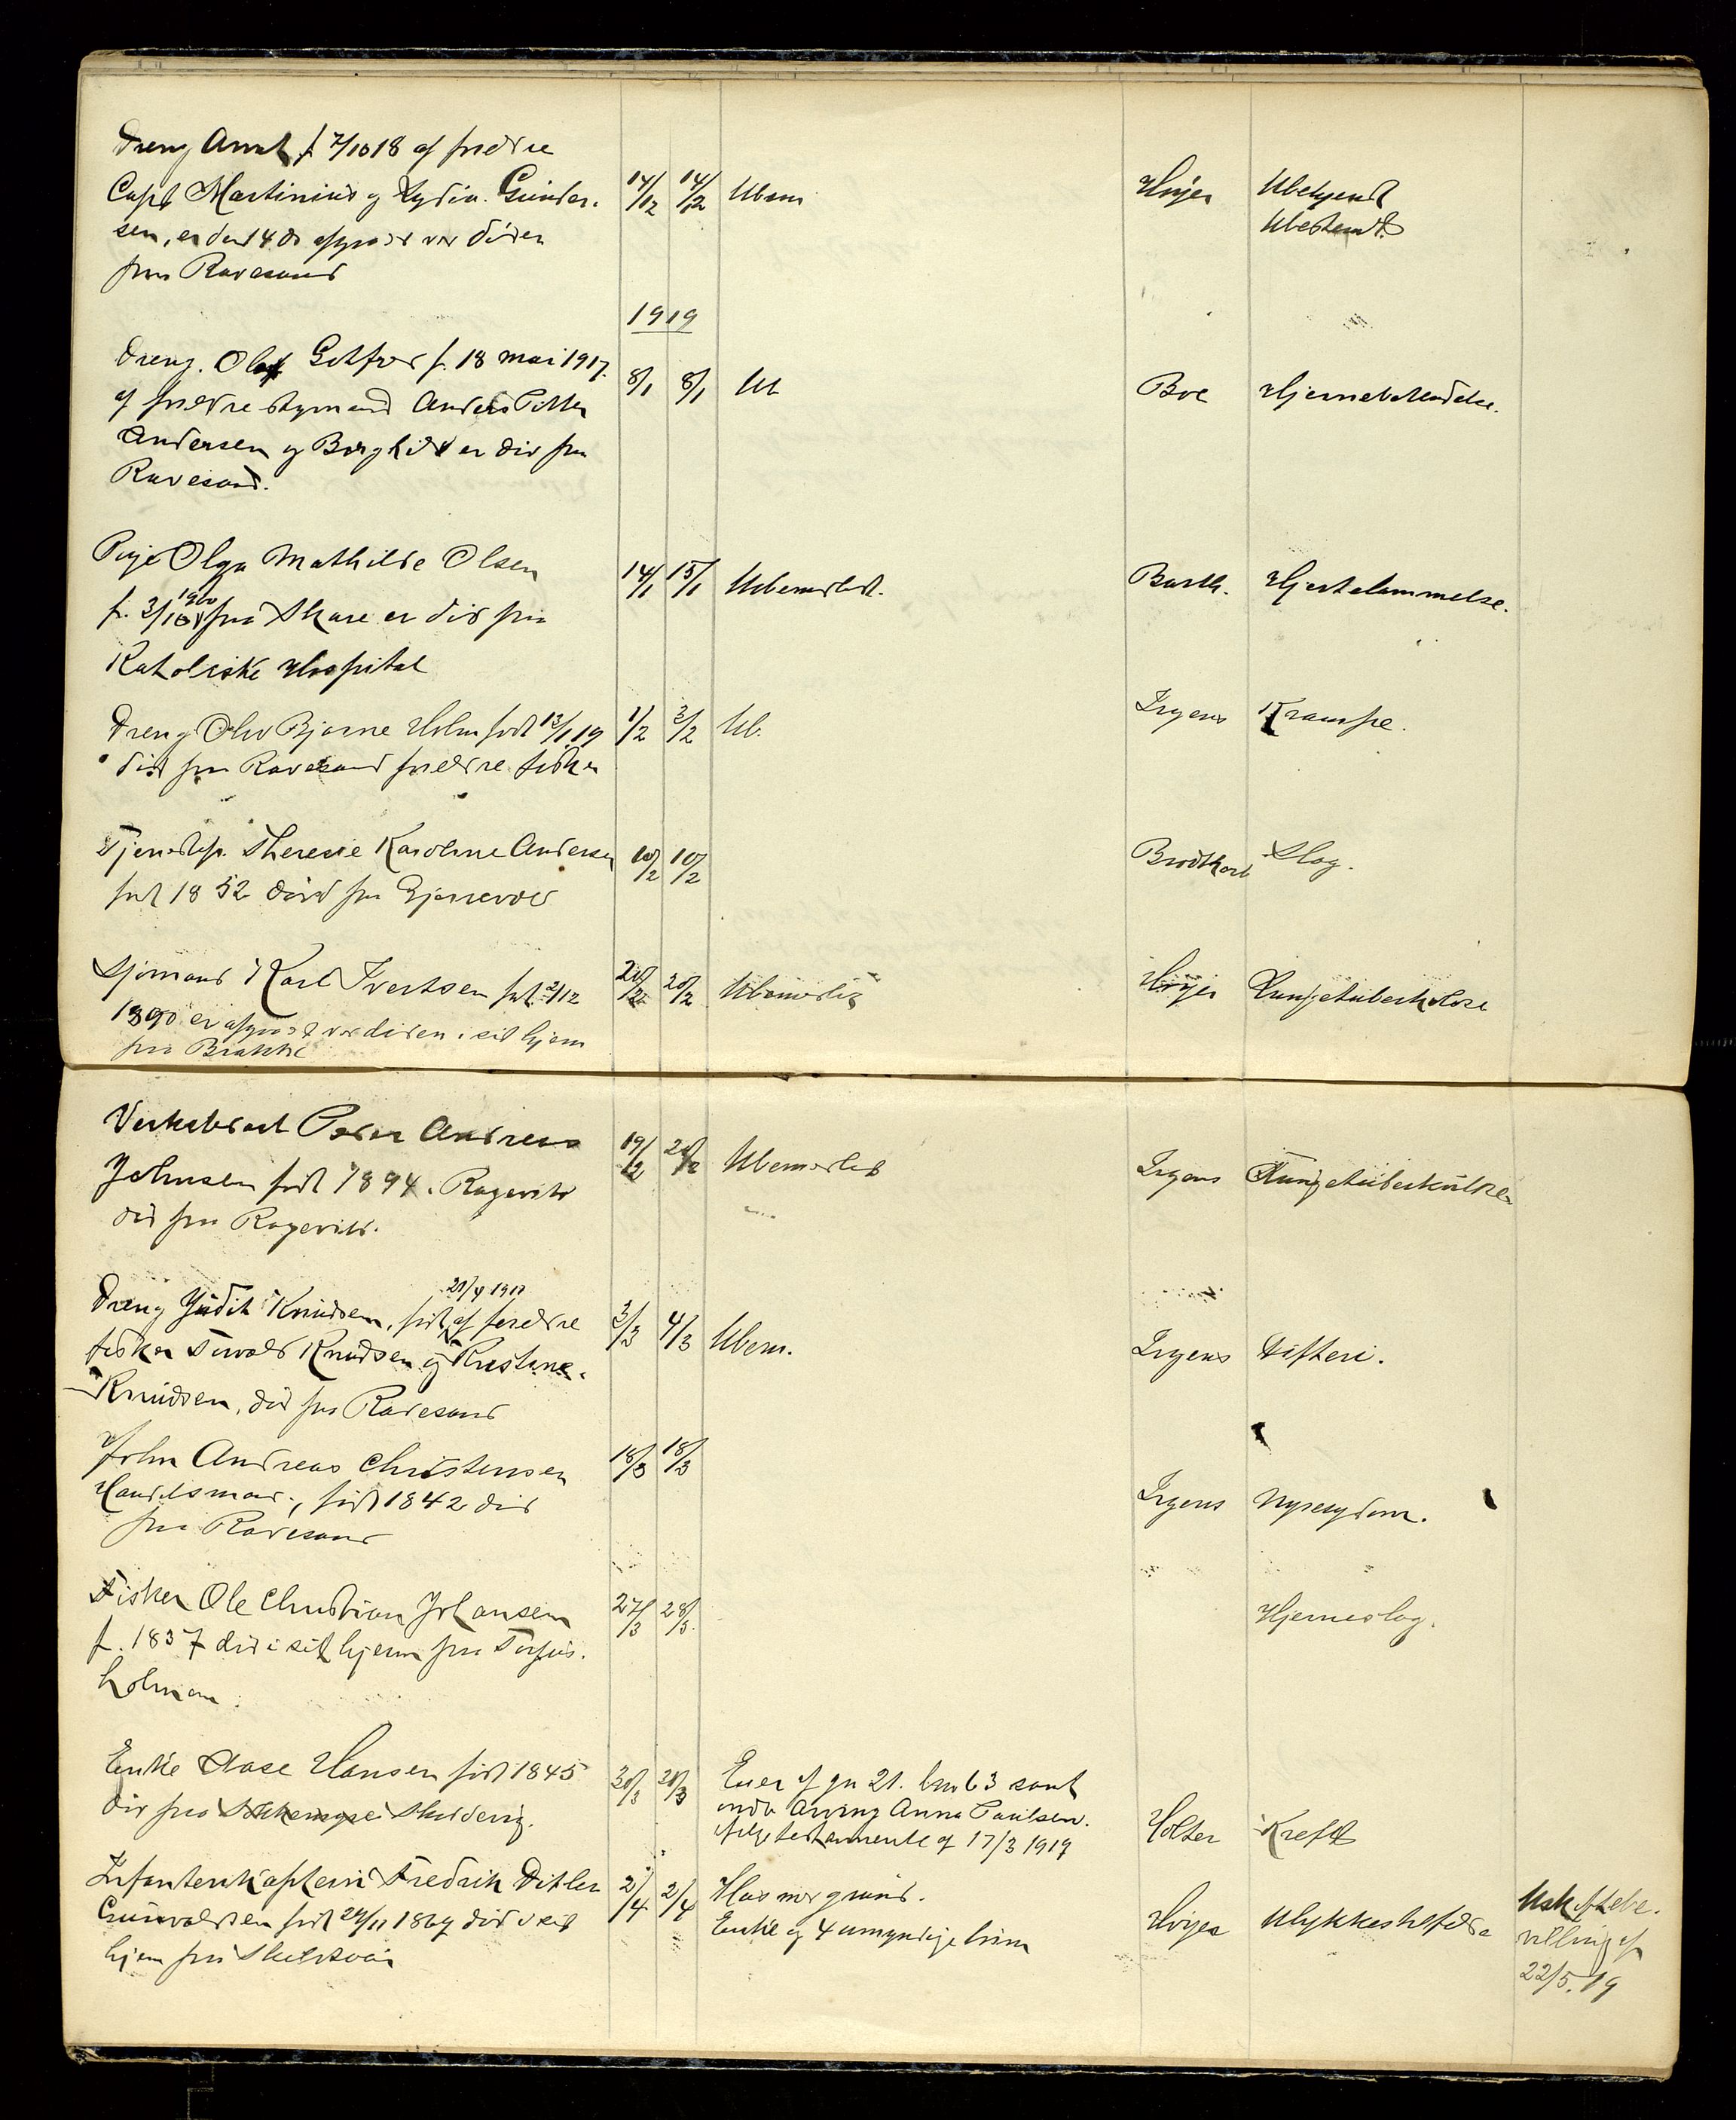 Dreng Arnt f 7/10 18 af foreldre
Capt Martinius og Lydia Gunder-
sen, er den 14 ds afgaaet ved døden
fra Ravesand
14/12 14/12 Ubem
Høyer Ubekjendt
Ubestemt
1919
Dreng. Olaf Gotfred f. 18 mai 1917.
af foreldre Styrmand Anders Petter
Andersen og Borghild er død fra
Ravesand.
8/1 8/1 Ub
Boe Hjernebetendelse.
Pige Olga Mathilde Olsen
f. 3/10 1900 fra Skare er død fra
Katoliske Hospital
14/1 15/1 Ubemerket.
Barth. Hjertelammelse.
Dreng Olav Bjarne Holm født 13/1 19
død fra Ravesand foreldre fisker
1/2 3/2 Ub.
Irgens Krampe.
Tjenestep. Theresie Karoline Andersen
født 1852 død fra Gjervold
10/2 10/2
Brodtkorb Slag.
Sjømand Karl Ivertsen født 2/12
1890 er afgaaet ved døden i sit hjem
fra Brakke
20/2 20/2 Ubemidlet
Høyer Lungetuberkulose
Verksbrest Peder Andreas
Johnsen født 1894. Ragevik
død fra Ragevik.
19/2 20/2 Ubemerket
Irgens Lungetuberkulose
Dreng Judit Knudsen, født 21/4 1911 af foreldre
fisker Torvald Knudsen og Kristine
Knudsen, død fra Ravesand
3/3 4/3 Ubem.
Irgens Difteri.
John Andreas Christensen
Handelsmand, født 1842 død
fra Ravesand
18/3 18/3
Irgens Nyresygdom.
Fisker Ole Christian Johansen
f. 1837 død i sit hjem fra Torjus-
holmen.
27/3 28/3
Hjerneslag.
Enke Aase Hansen født 1845
død fra Skudevig.
20/3 20/3 Eier af gn 21. bno 63 samt
Arving Anna Paulsen.
ifølge testamente af 17/3 1919
Holter Kreft
Infanterikaptein Fredrik Ditlev
Grünvaldsen født 24/11 1869 død i sit
hjem fra Skilsøen
2/4 2/4 Hus med grund.
Enke og 4 umyndige børn
Høyer Ulykkestilfelde
Uskiftebe-
villing af
22/5. 19